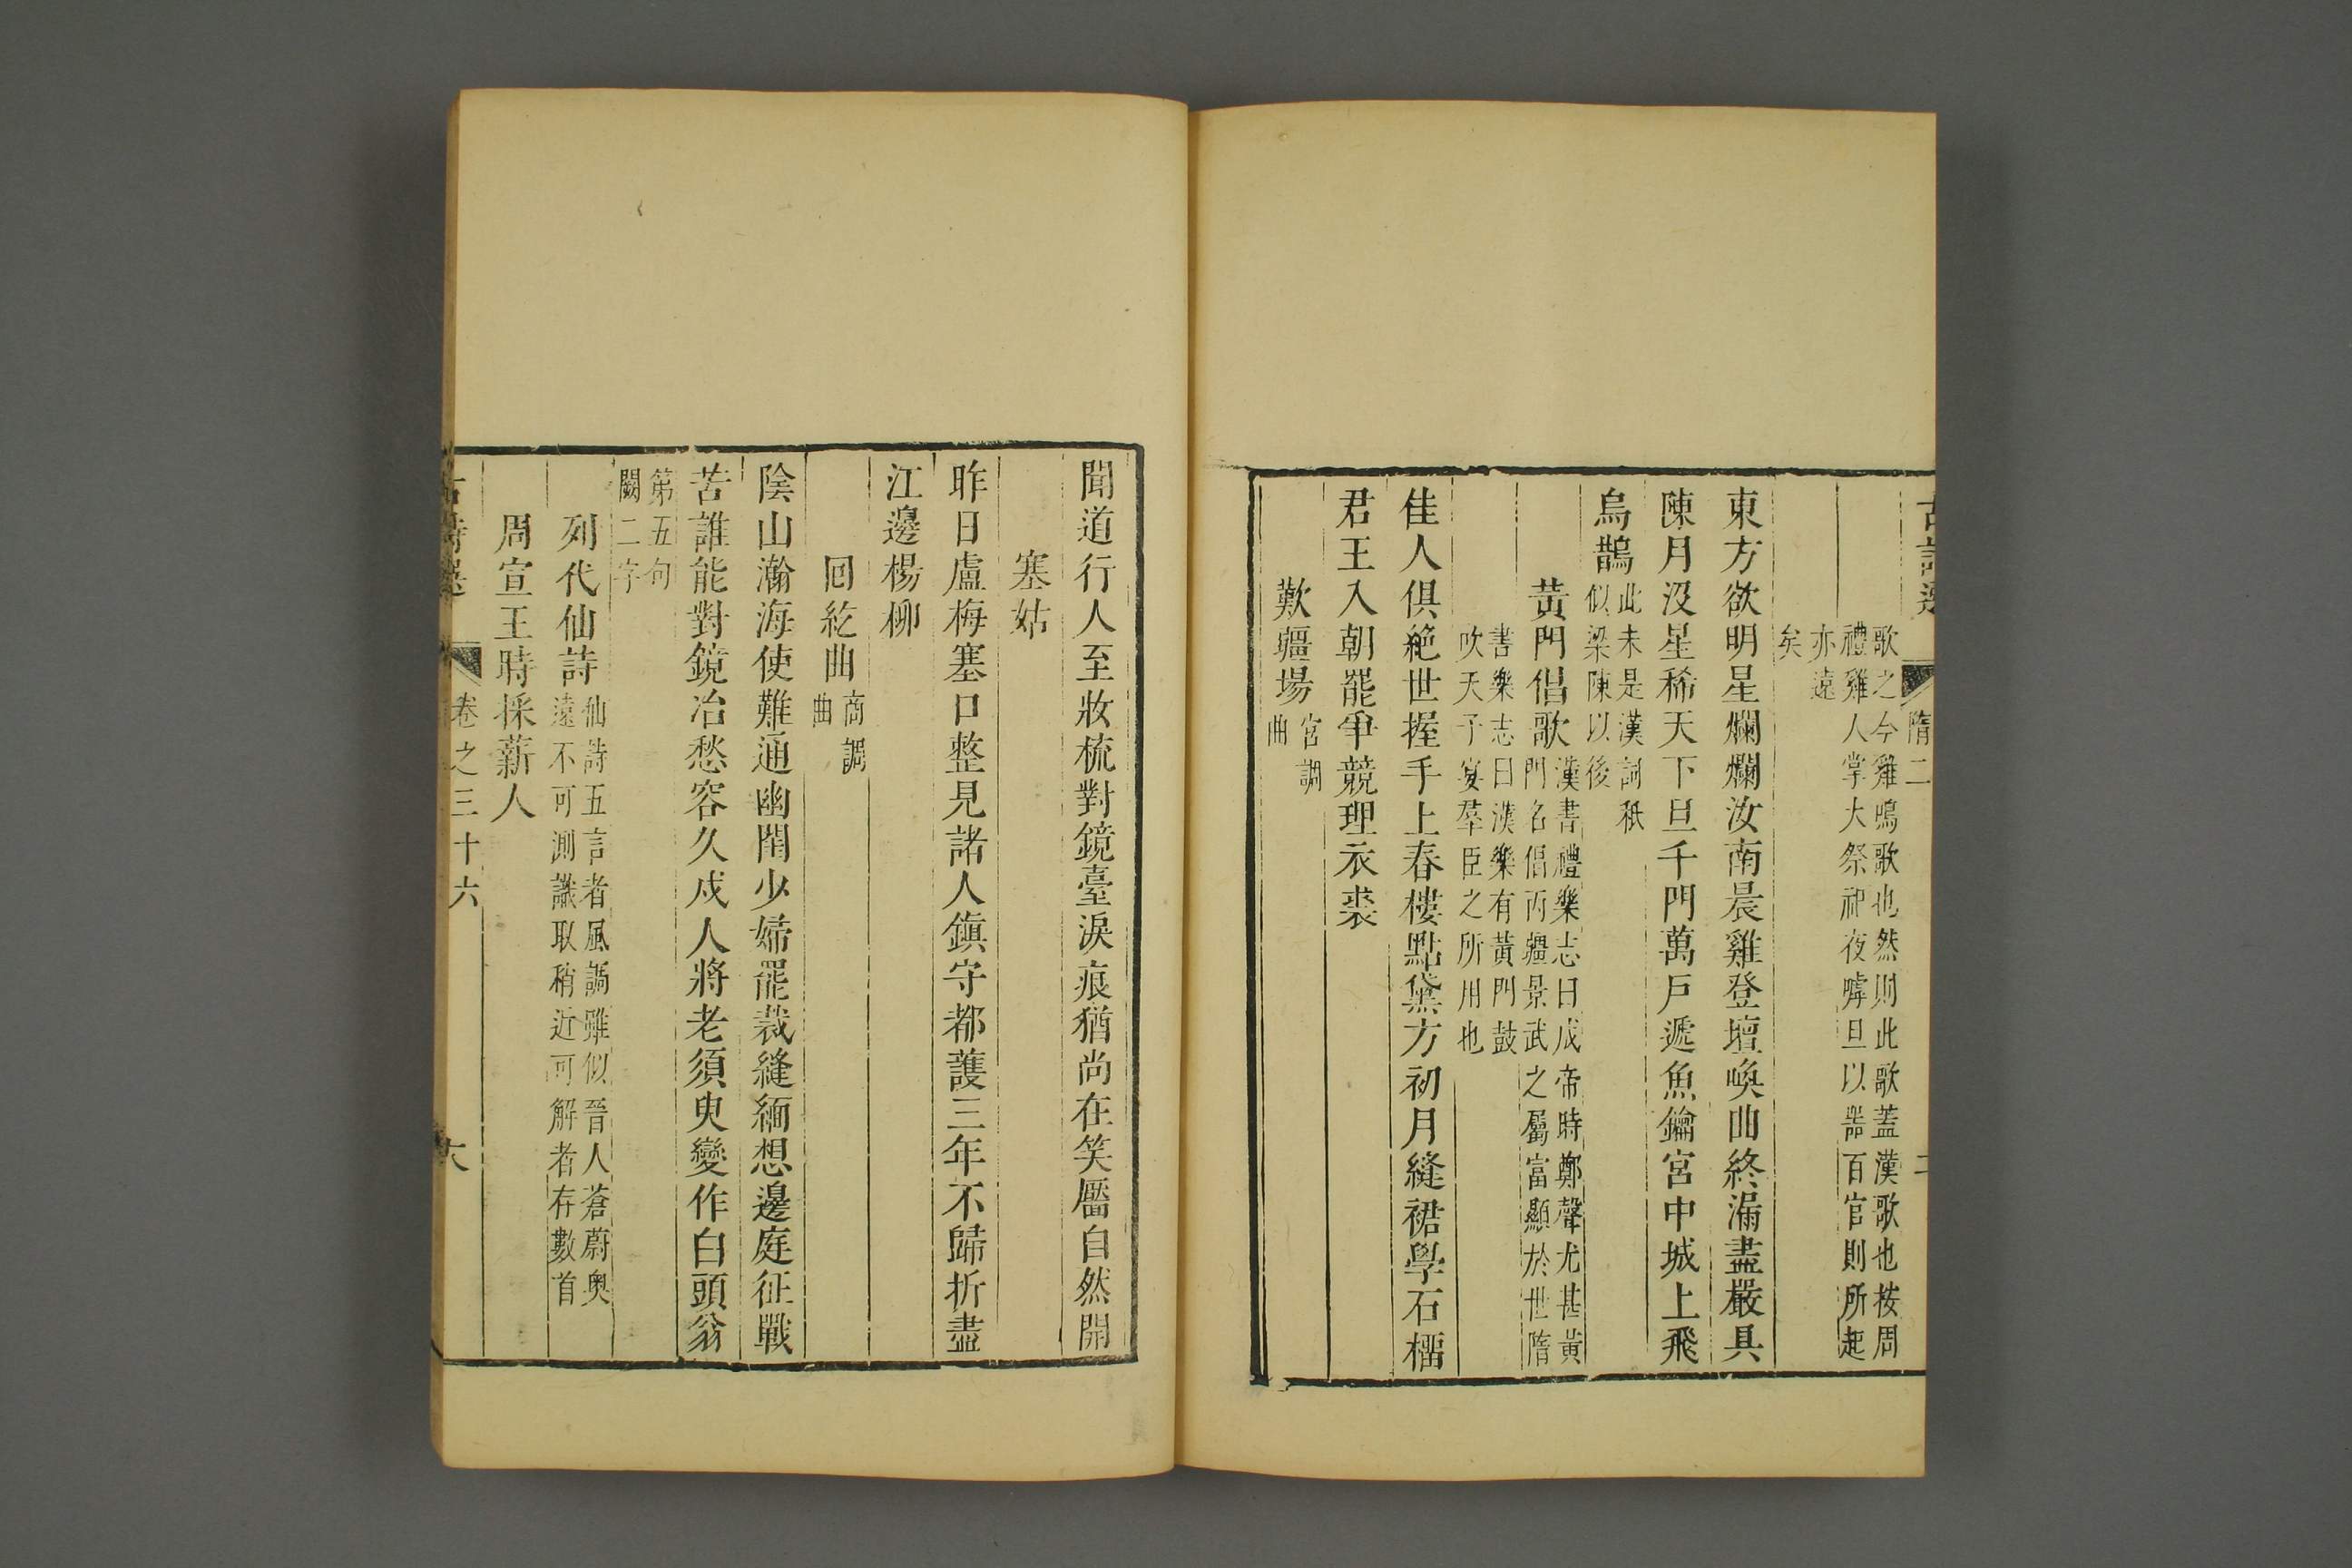 隋二
歌之今雞鳴歌也然則此歌蓋漢歌也按周
禮雞人掌大祭祀夜嘑旦以嘂百官則所起
亦遠
矣
東方欲明星爛爛汝南晨雞登壇喚曲終漏盡嚴具
陳月沒星稀天下旦千門萬戶遞魚鑰宮中城上飛
烏鵲此未是漢詞秖
似梁陳以後
黃門倡歌漢書禮樂志曰成帝時鄭聲尤甚黃
門名倡丙彊景武之屬富顯於世隋
書樂志曰漢樂有黃門鼓
吹天子宴羣臣之所用也
佳人俱絶世握手上春樓點黛方初月縫裙學石榴
君王入朝罷爭競理衣裘
歎疆場宮調
曲
聞道行人至妝梳對鏡臺淚痕猶尚在笑靨自然開
塞姑
昨日盧梅塞口整見諸人鎮守都護三年不歸折盡
江邊楊柳
回紇曲商調
曲
陰山瀚海使難通幽閨少婦罷裁縫緬想邊庭征戰
苦誰能對鏡冶愁容久戍人將老須臾變作白頭翁
第五句
闕二字
列代仙詩仙詩五言者風調雖似晉人蒼蔚奧
遠不可測識取稍近可解者存數首
周宣王時採薪人
卷之三十六
六